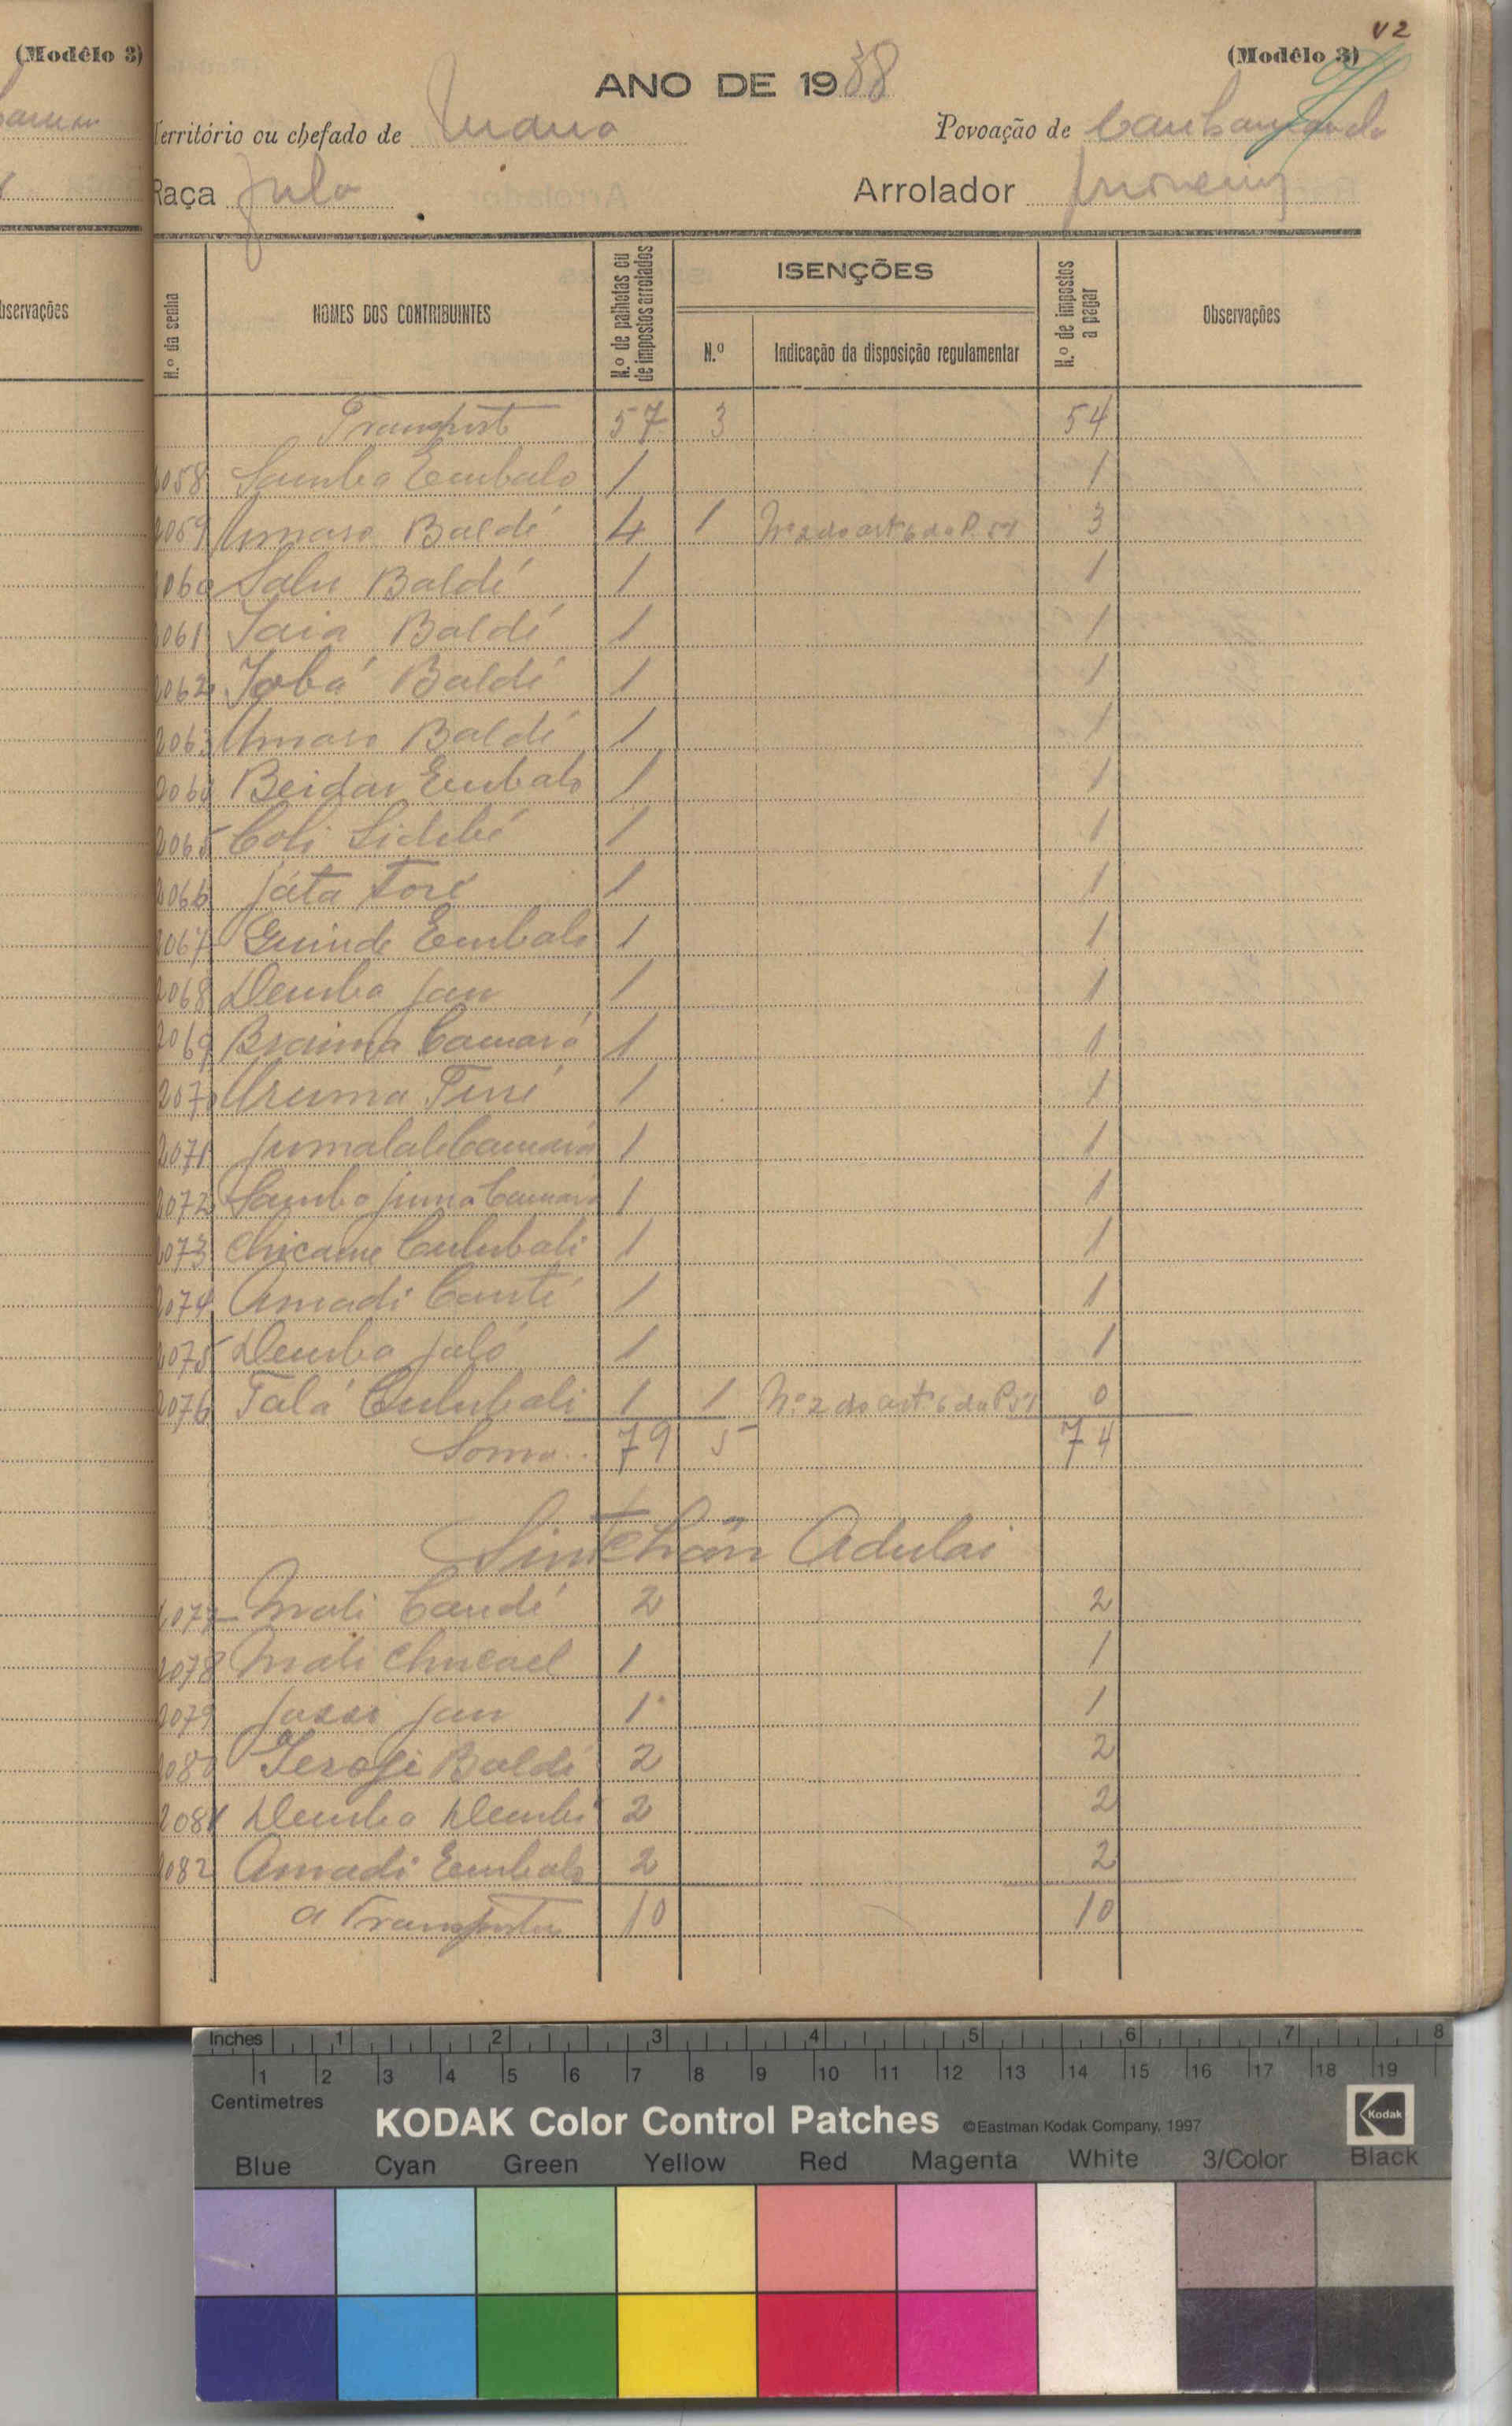 V2
(Modêlo 3)
(Modêlo 3)
ANO DE 1938
Território ou chefado de
Povoação de
Raça Fula
Arrolador
bservações
N.º da senha
NOMES DOS CONTRIBUINTES
N.º de palhotas ou de impostos arrolados
ISENÇÕES
N.º
Indicação da disposição regulamentar
N.º de impostos a pagar
Observações
Transporte 57 3 54
2058 Samba Embalo 1 1
2059 Umaro Baldé 4 1 Nº 2 do artº 6 do P. 51 3
2060 Salu Baldé 1 1
2061 Iaia Baldé 1 1
2062 Jobá Baldé 1 1
2063 Umaro Baldé 1 1
2064 Beidar Embalo 1 1
2065 Coli Sidibé 1 1
2066 Játa Toré 1 1
2067 Guinde Embalo 1 1
2068 Demba Jau 1 1
2069 Braima Camará 1 1
2070 Uruma Turé 1 1
2071 Jumalale Camará 1 1
2072 Samba Juma Camará 1 1
2073 Chicame Culubali 1 1
2074 Amadi Canté 1 1
2075 Demba Jaló 1 1
2076 Talá Culubali 1 1 Nº 2 do artº 6 do P. 51 0
Soma.. 79 5 74
Sintchãn Adulai
2077 Mali Candé 2 2
2078 Mali 1 1
2079 Jau 1 1
2080 Baldé 2 2
2081 Demba Dembé 2 2
2082 Amadi Embalo 2 2
a Transportar 10 10
Inches 1 2 3 4 5 6 7 8
1 2 3 4 5 6 7 8 9 10 11 12 13 14 15 16 17 18 19
Centimetres
KODAK Color Control Patches ©Eastman Kodak Company, 1997 Kodak
Blue Cyan Green Yellow Red Magenta White 3/Color Black